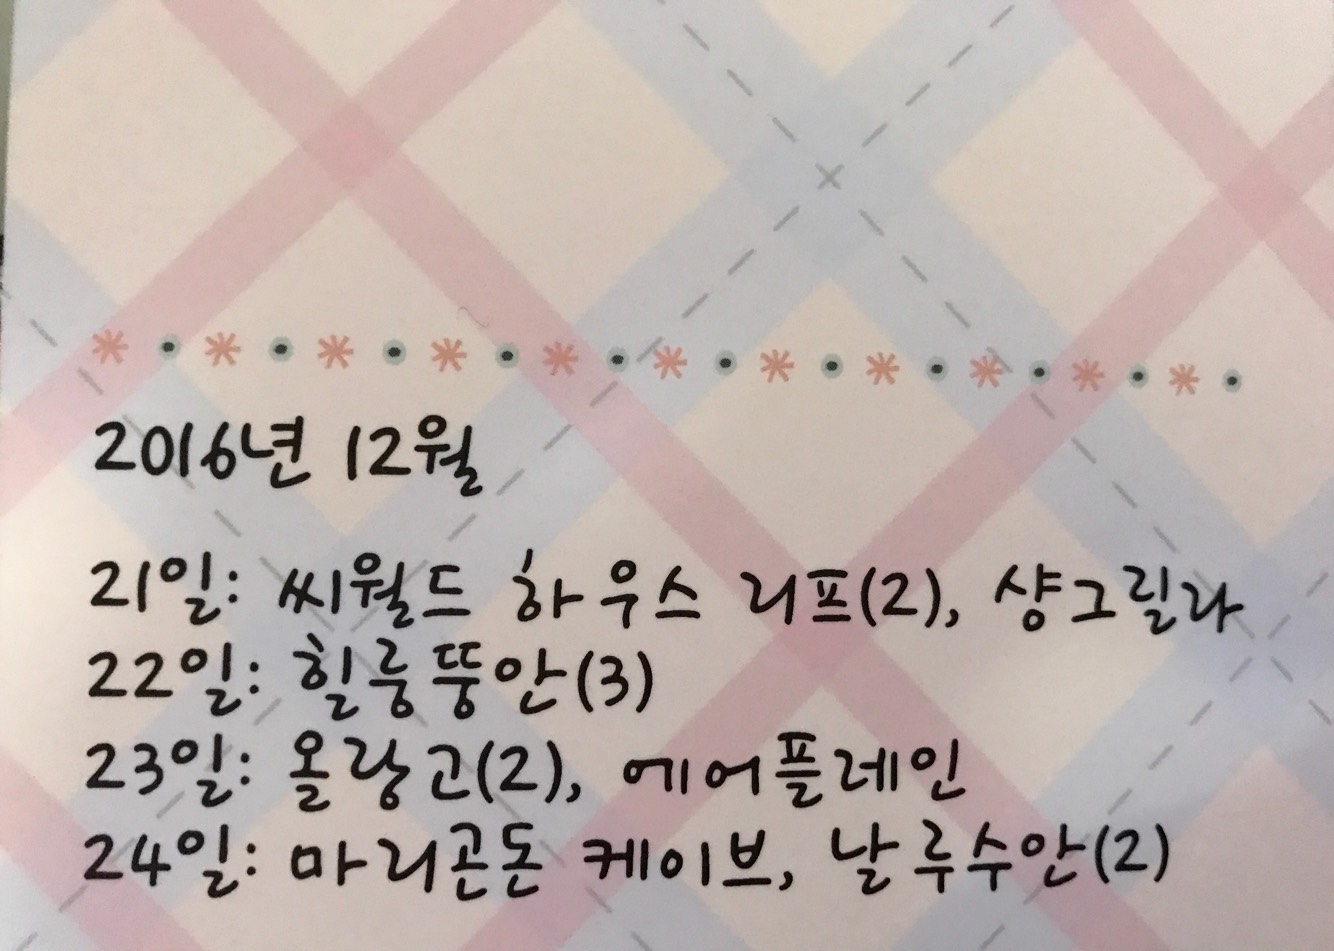 2016년 12월
21일: 씨월드 하우스 리프(2), 샹그릴라
22일: 힐룽뚱안(3)
23일: 올랑고(2), 에어플레인
24일: 마리곤돈 케이브, 날루수안(2)